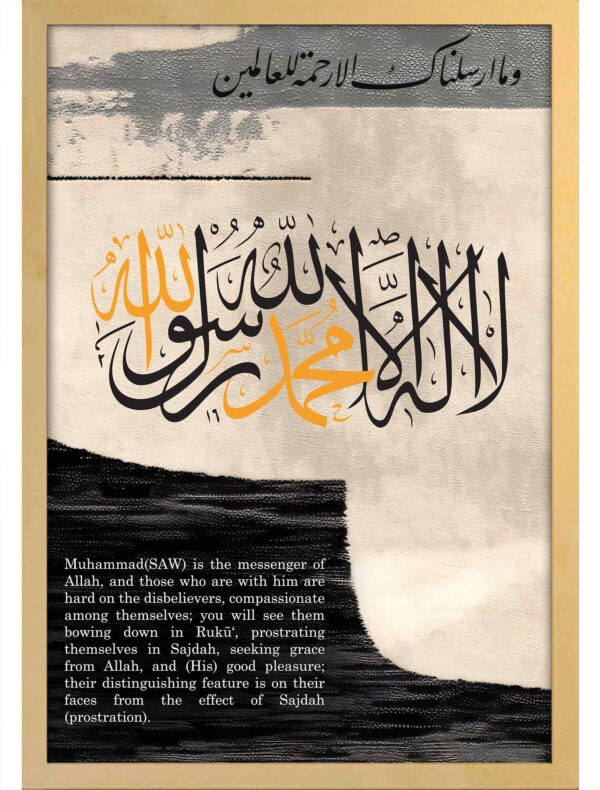 وما ارسلناك الا رحمة للعالمين
لا اله الا الله محمد رسول الله
Muhammad(SAW) is the messenger of
Allah, and those who are with him are
hard on the disbelievers, compassionate
among themselves; you will see them
bowing down in Rukū‘, prostrating
themselves in Sajdah, seeking grace
from Allah, and (His) good pleasure;
their distinguishing feature is on their
faces from the effect of Sajdah
(prostration).